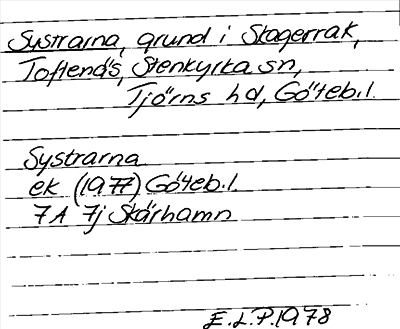 Systrarna, grund i Skagerrak,
Toftenäs, Stenkyrka sn,
Tjörns hd, Göteb.l.
Systrarna
ek (1977) Göteb.l.
7A 7j Skärhamn
E.L.P.1978